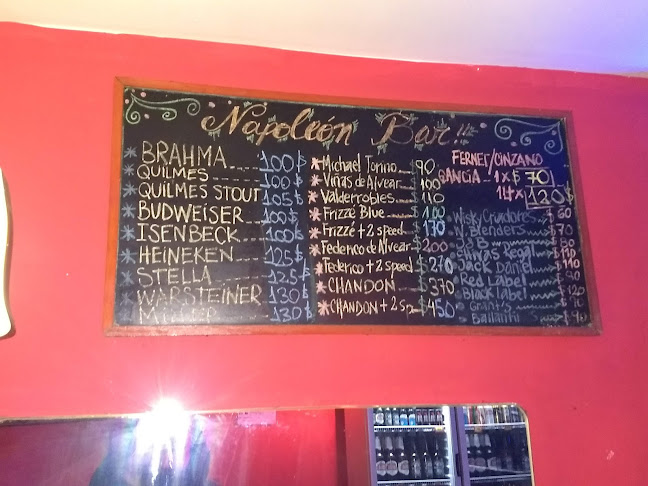 Napoleón Bar!!
BRAHMA 100$
QUILMES 100$
QUILMES STOUT 105$
BUDWEISER 100$
ISENBECK 100$
HEINEKEN 125$
STELLA 125$
WARSTEINER 130$
MILLER 130$
Michael Torino 90
Viñas de Alvear 100
Valderrobles $110
Frizzé Blue $100
Frizzé + 2 speed $170
Federico de Alvear $200
Federico + 2 speed $270
CHANDON $370
CHANDON + 2 sp $450
FERNET/CINZANO
GANCIA 1x$ 70
14x$ 120
Wisky Criadores $60
N. Blenders $70
J&B $80
Chivas Regal $110
Jack Daniel $110
Red Label
Black label $120
Grants